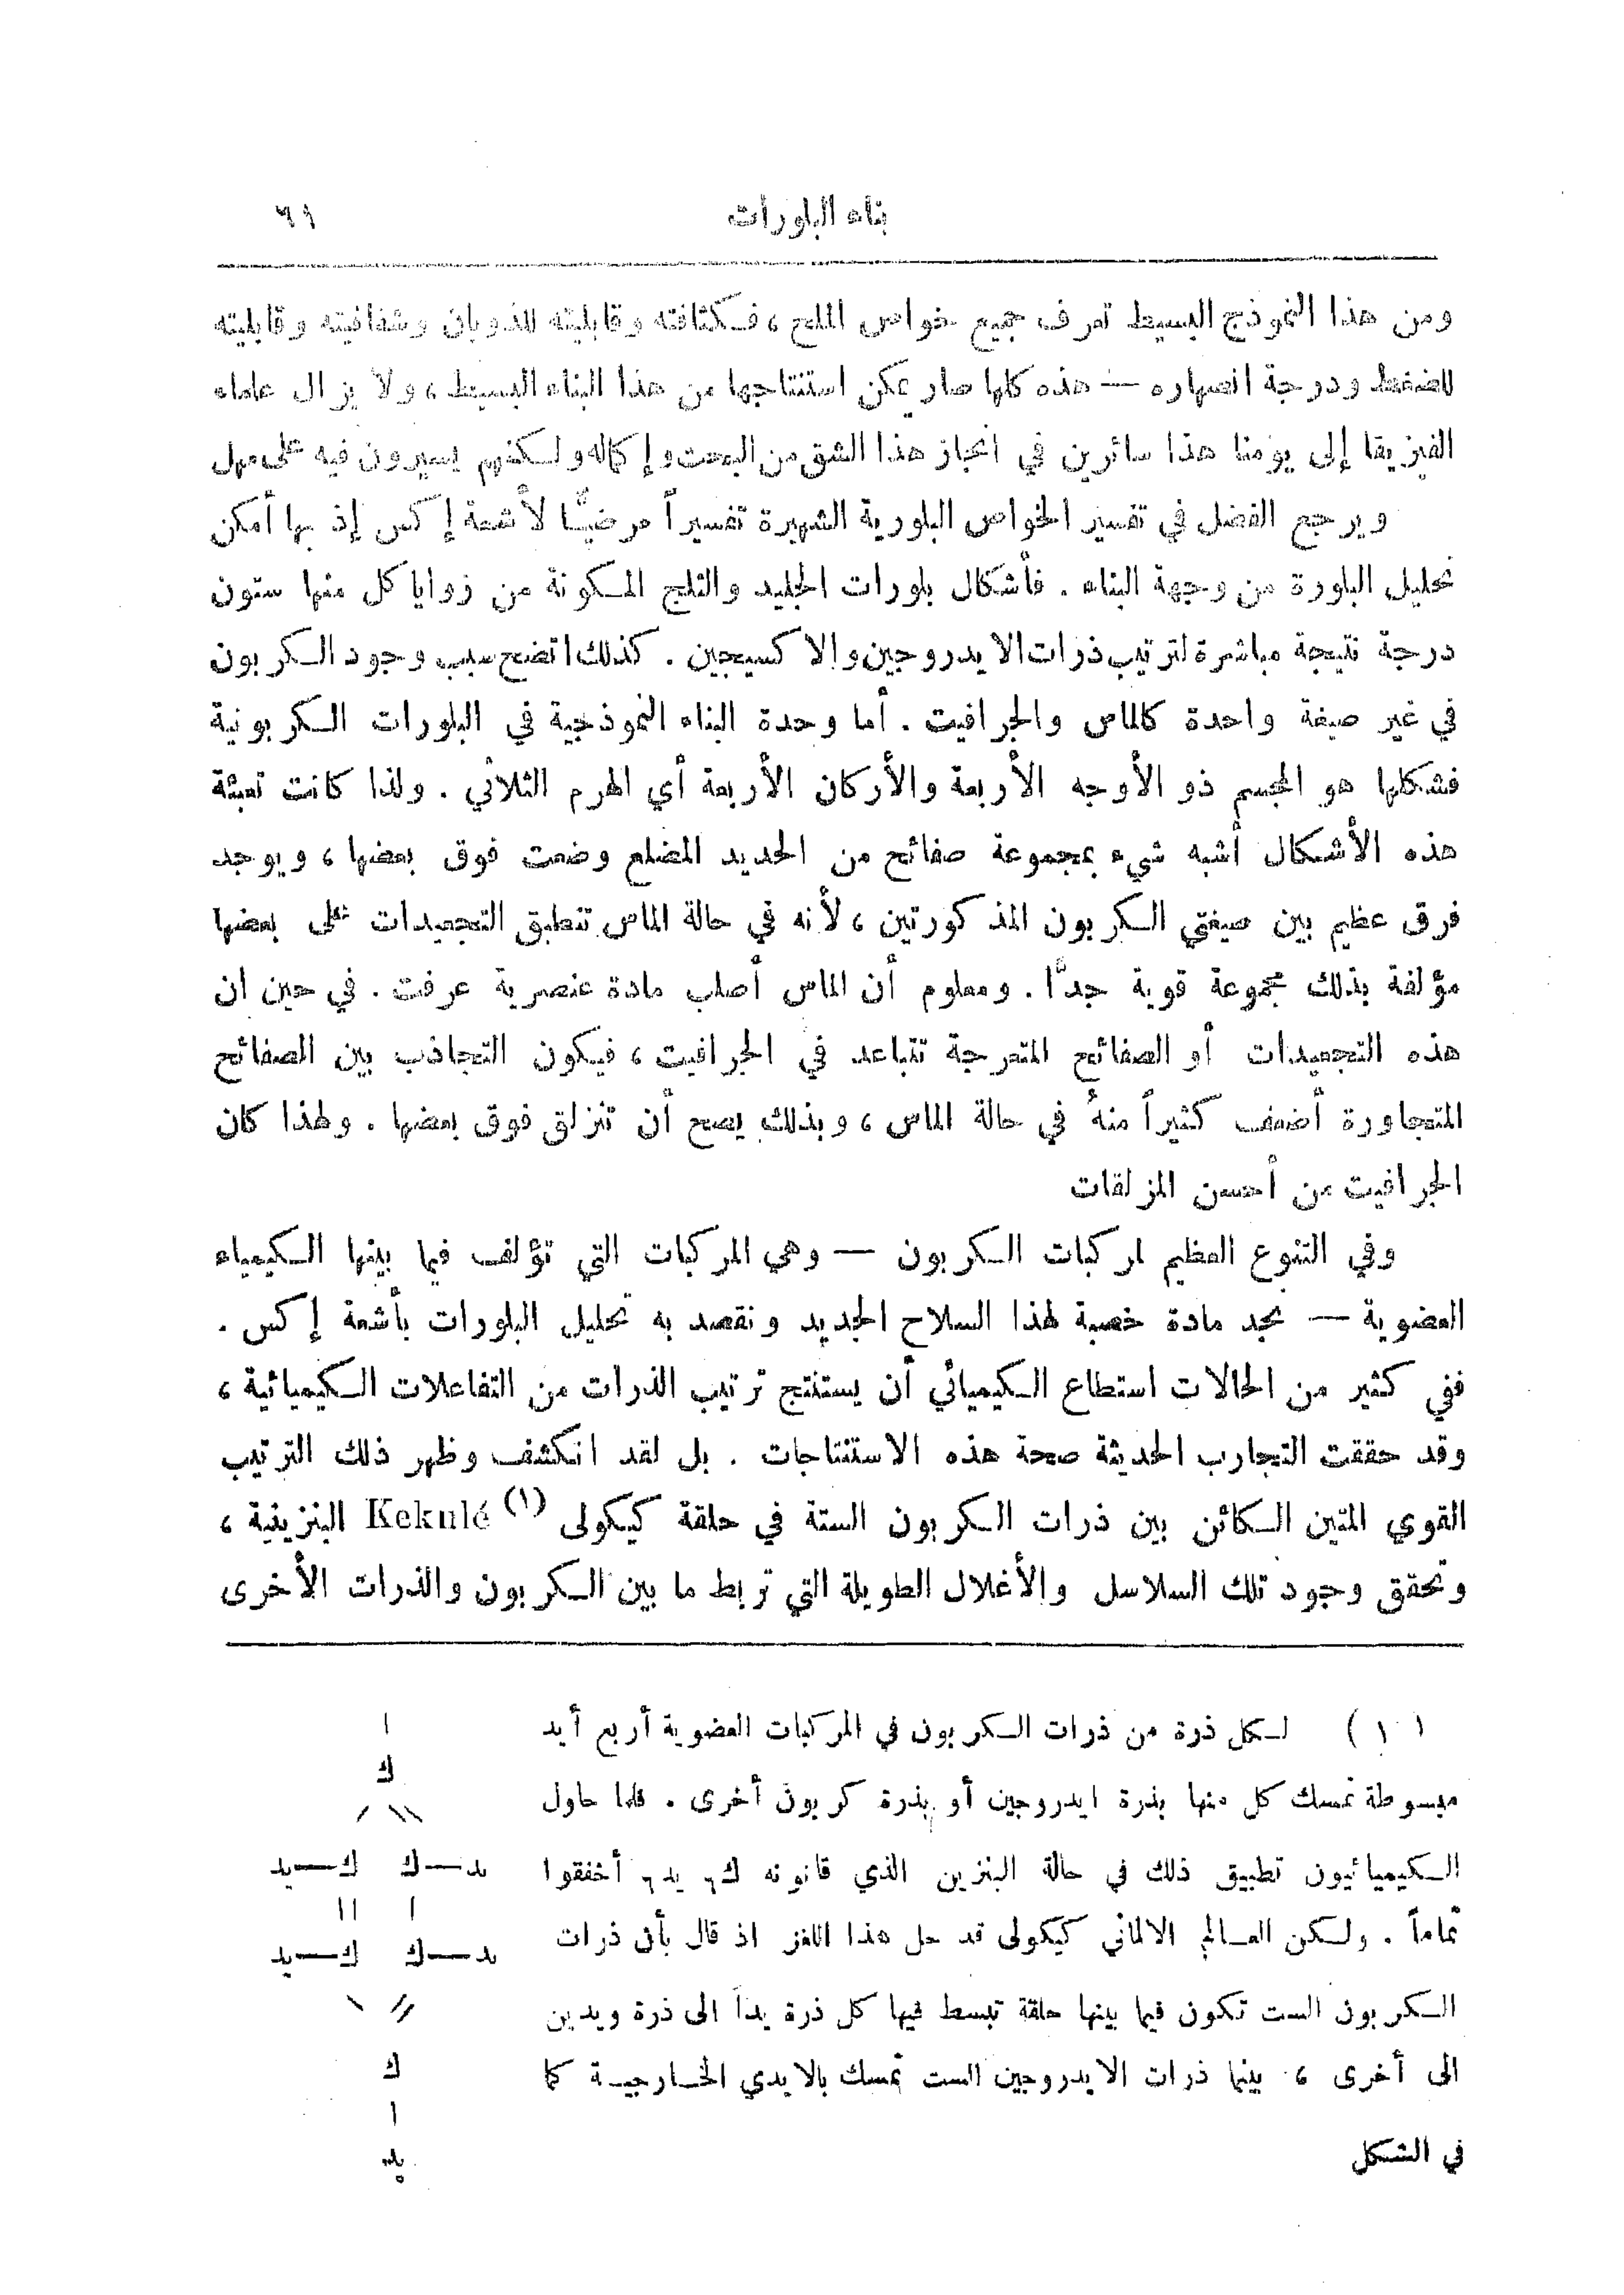 بناء البلورات ٦١
ومن هذا النموذج البسيط تعرف جميع خواص الملح ، فكثافته وقابليته للذوبان وشفافيته وقابليته
للضغط ودرجة انصهاره — هذه كلها صار يمكن استنتاجها من هذا البناء البسيط ، ولا يزال علماء
الفيزيقا إلى يومنا هذا سائرين في انجاز هذا الشق من البحث وإكماله ولكنهم يسيرون فيه على مهل
ويرجع الفضل في تفسير الخواص البلورية الشهيرة تفسيراً مرضيًّا لأشعة إكس إذ بها أمكن
تحليل البلورة من وجهة البناء . فأشكال بلورات الجليد والثلج المكونة من زوايا كل منها ستون
درجة نتيجة مباشرة لترتيب ذرات الايدروجين والاكسيجين . كذلك اتضح سبب وجود الكربون
في غير صيغة واحدة كالماس والجرافيت . أما وحدة البناء النموذجية في البلورات الكربونية
فشكلها هو المجسم ذو الأوجه الأربعة والأركان الأربعة أي الهرم الثلاثي . ولذا كانت تعبئة
هذه الأشكال أشبه شيء بمجموعة صفائح من الحديد المضلع وضعت فوق بعضها ، ويوجد
فرق عظيم بين صيغتي الكربون المذكورتين ، لأنه في حالة الماس تنطبق التجعيدات على بعضها
مؤلفة بذلك مجموعة قوية جدًّا . ومعلوم أن الماس أصلب مادة عنصرية عرفت . في حين ان
هذه التجعيدات أو الصفائح المتعرجة تتباعد في الجرافيت ، فيكون التجاذب بين الصفائح
المتجاورة أضعف كثيراً منهُ في حالة الماس ، وبذلك يصح أن تنزلق فوق بعضها . ولهذا كان
الجرافيت من أحسن المزلقات
وفي التنوع العظيم لمركبات الكربون — وهي المركبات التي تؤلف فيما بينها الكيمياء
العضوية — نجد مادة خصبة لهذا السلاح الجديد ونقصد به تحليل البلورات بأشعة إكس .
ففي كثير من الحالات استطاع الكيميائي أن يستنتج ترتيب الذرات من التفاعلات الكيميائية ،
وقد حققت التجارب الحديثة صحة هذه الاستنتاجات . بل لقد انكشف وظهر ذلك الترتيب
القوي المتين الكائن بين ذرات الكربون الستة في حلقة كيكولى Kekulé (١) البنزينية ،
وتحقق وجود تلك السلاسل والأغلال الطويلة التي تربط ما بين الكربون والذرات الأخرى
(١) لكل ذرة من ذرات الكربون في المركبات العضوية أربع أيد
مبسوطة تمسك كل منها بذرة ايدروجين أو بذرة كربون أخرى . فلما حاول
الكيميائيون تطبيق ذلك في حالة البنزين الذي قانونه ك٦ يد٦ أخفقوا
تماماً . ولكن العالم الالماني كيكولى قد حل هذا اللغز اذ قال بأن ذرات
الكربون الست تكون فيما بينها حلقة تبسط فيها كل ذرة يداً الى ذرة ويدين
الى أخرى ، بينما ذرات الايدروجين الست تمسك بالايدي الخارجية كما
في الشكل
ك
يد—ك ك—يد
يد—ك ك—يد
ك
يد